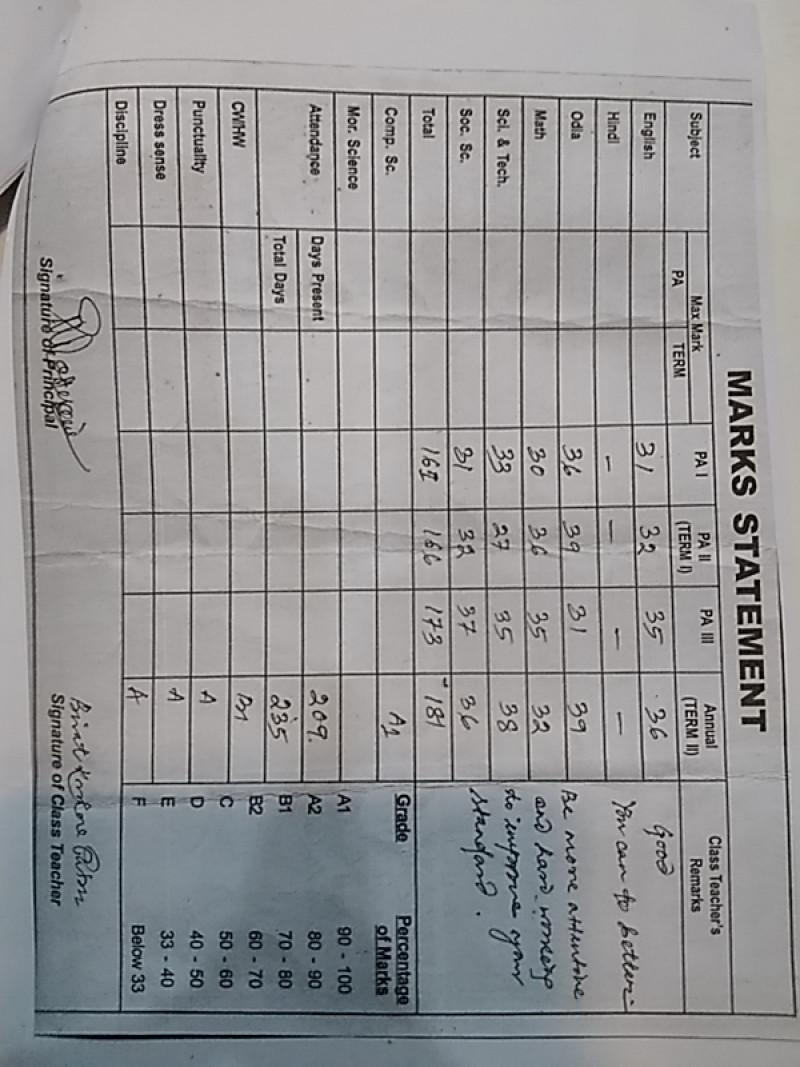 MARKS STATEMENT
Subject Max Mark PA I PA II (TERM I) PA III Annual (TERM II) Class Teacher's Remarks
PA TERM
English 31 32 35 36 Good
Hindi – – – – You can to better
Odia 36 39 31 39 Be more attentive
Math 30 36 35 32 and hard working
Sci. & Tech. 33 27 35 38 to improve your
Soc. Sc. 31 32 37 36 standard.
Total 161 166 173 181
Comp. Sc. A1 Grade Percentage of Marks
Mor. Science A1 90 - 100
Attendance Days Present 209 A2 80 - 90
Total Days 235 B1 70 - 80
CW/HW B1 B2 60 - 70
C 50 - 60
Punctuality A D 40 - 50
Dress sense A E 33 - 40
Discipline A F Below 33
Signature of Principal Signature of Class Teacher